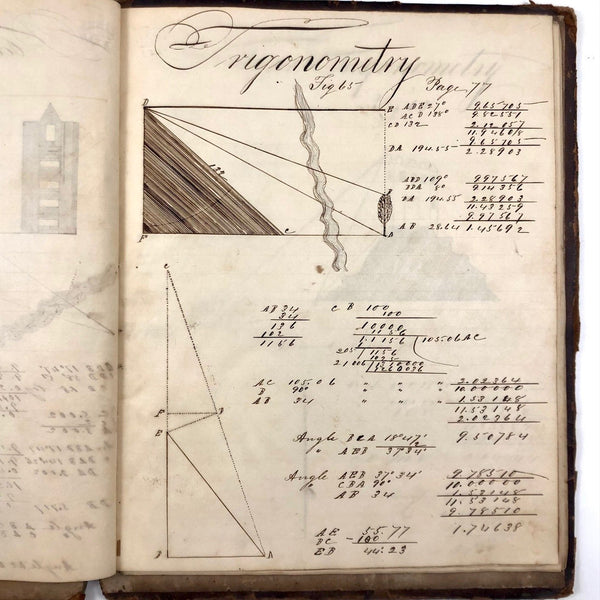 Trigonometry
Fig 65 Page 77
D E ADE 27° 9.65705
ACD 138° 9.82551
CD 132 2.12057
11.94608
9.65705
DA 194.55 2.28903
132
ABD 109° 9.97567
BDA 8° 9.14356
DA 194.55 2.28903
11.43259
9.97567
AB 28.64 1.45692
F C A
C
AB 34 CB 100
34 100
136 10000
102 1156
1156 1.1156 105.06 AC
205 1156
1025
AC 105.06 " " " 2.02364
B 90° 10.00000
AB 34 " " " 1.53148
11.53148
2.02364
Angle BCA 18°47' 9.50784
" AEB 37°34'
Angle AEB 37°34' 9.78510
" CBA 90° 10.00000
AB 34 1.53148
11.53148
9.78510
AE 55.77 1.74638
BC - 100
EB 44.23
F D
E
A